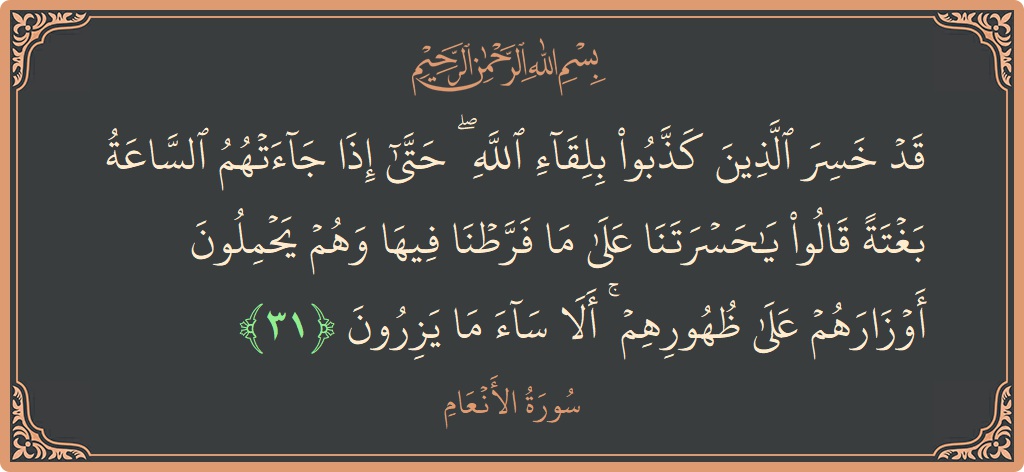 بِسْمِ اللَّهِ الرَّحْمَٰنِ الرَّحِيمِ
قَدْ خَسِرَ ٱلَّذِينَ كَذَّبُوا۟ بِلِقَآءِ ٱللَّهِ ۖ حَتَّىٰٓ إِذَا جَآءَتْهُمُ ٱلسَّاعَةُ
بَغْتَةً قَالُوا۟ يَـٰحَسْرَتَنَا عَلَىٰ مَا فَرَّطْنَا فِيهَا وَهُمْ يَحْمِلُونَ
أَوْزَارَهُمْ عَلَىٰ ظُهُورِهِمْ ۚ أَلَا سَآءَ مَا يَزِرُونَ ﴿٣١﴾
سُورَةُ الأَنْعَامِ